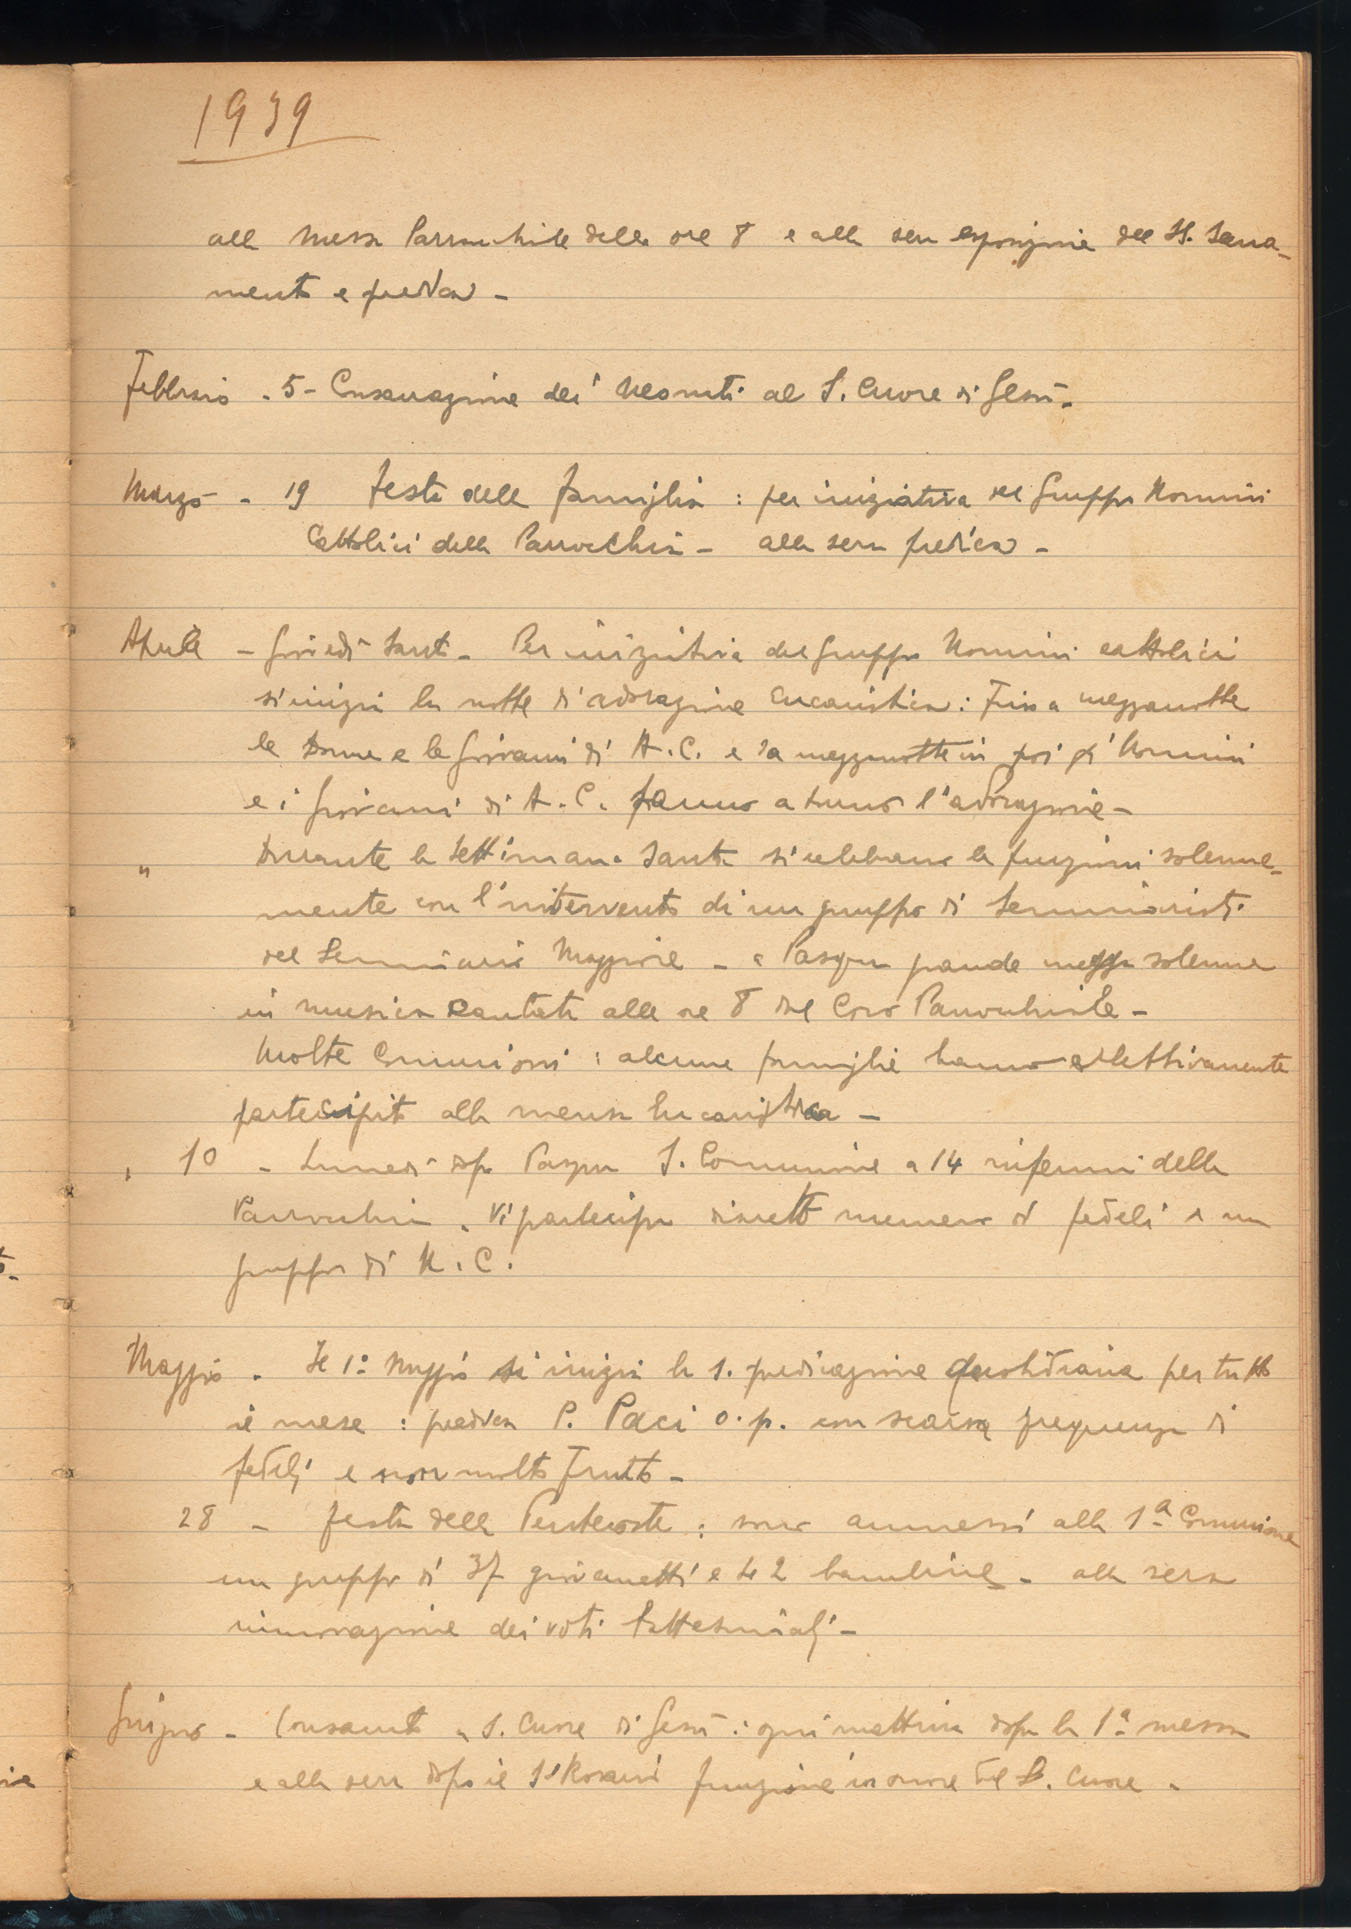 1939
alla messa Parrocchiale delle ore 8 e alla sera esposizione del SS. Sacra-
mento e predica -
Febbraio - 5 - Consacrazione dei Neonati al S. Cuore di Gesù -
Marzo - 19 festa della famiglia : per iniziativa del Gruppo Uomini
Cattolici della Parrocchia - alla sera predica -
Aprile - Giovedì Santo - Per iniziativa del Gruppo Uomini cattolici
si inizia la notte di adorazione Eucaristica : Fino a mezzanotte
le Donne e le Giovani di A. C. e da mezzanotte in poi gli Uomini
e i Giovani di A. C. fanno a turno l'adorazione -
" Durante la Settimana Santa si celebrano le funzioni solenne-
mente con l'intervento di un gruppo di Seminaristi
del Seminario Maggiore - a Pasqua grande messa solenne
in musica cantata alle ore 8 dal Coro Parrocchiale -
Molte Comunioni : alcune famiglie hanno collettivamente
partecipato alla mensa Eucaristica -
" 10 - Lunedì dopo Pasqua S. Comunione a 14 infermi della
Parrocchia - Vi partecipa discreto numero di fedeli e un
gruppo di U. C.
Maggio - Il 1° Maggio si inizia la S. predicazione quotidiana per tutto
il mese : predica P. Paci o. p. con scarsa frequenza di
fedeli e non molto frutto -
28 - festa della Pentecoste : sono ammessi alla 1ª Comunione
un gruppo di 37 giovanetti e 42 bambine - alla sera
rinnovazione dei voti battesimali -
Giugno - Consacrato a S. Cuore di Gesù : ogni mattina dopo la 1ª messa
e alla sera dopo il S. Rosario funzione in onore del S. Cuore -